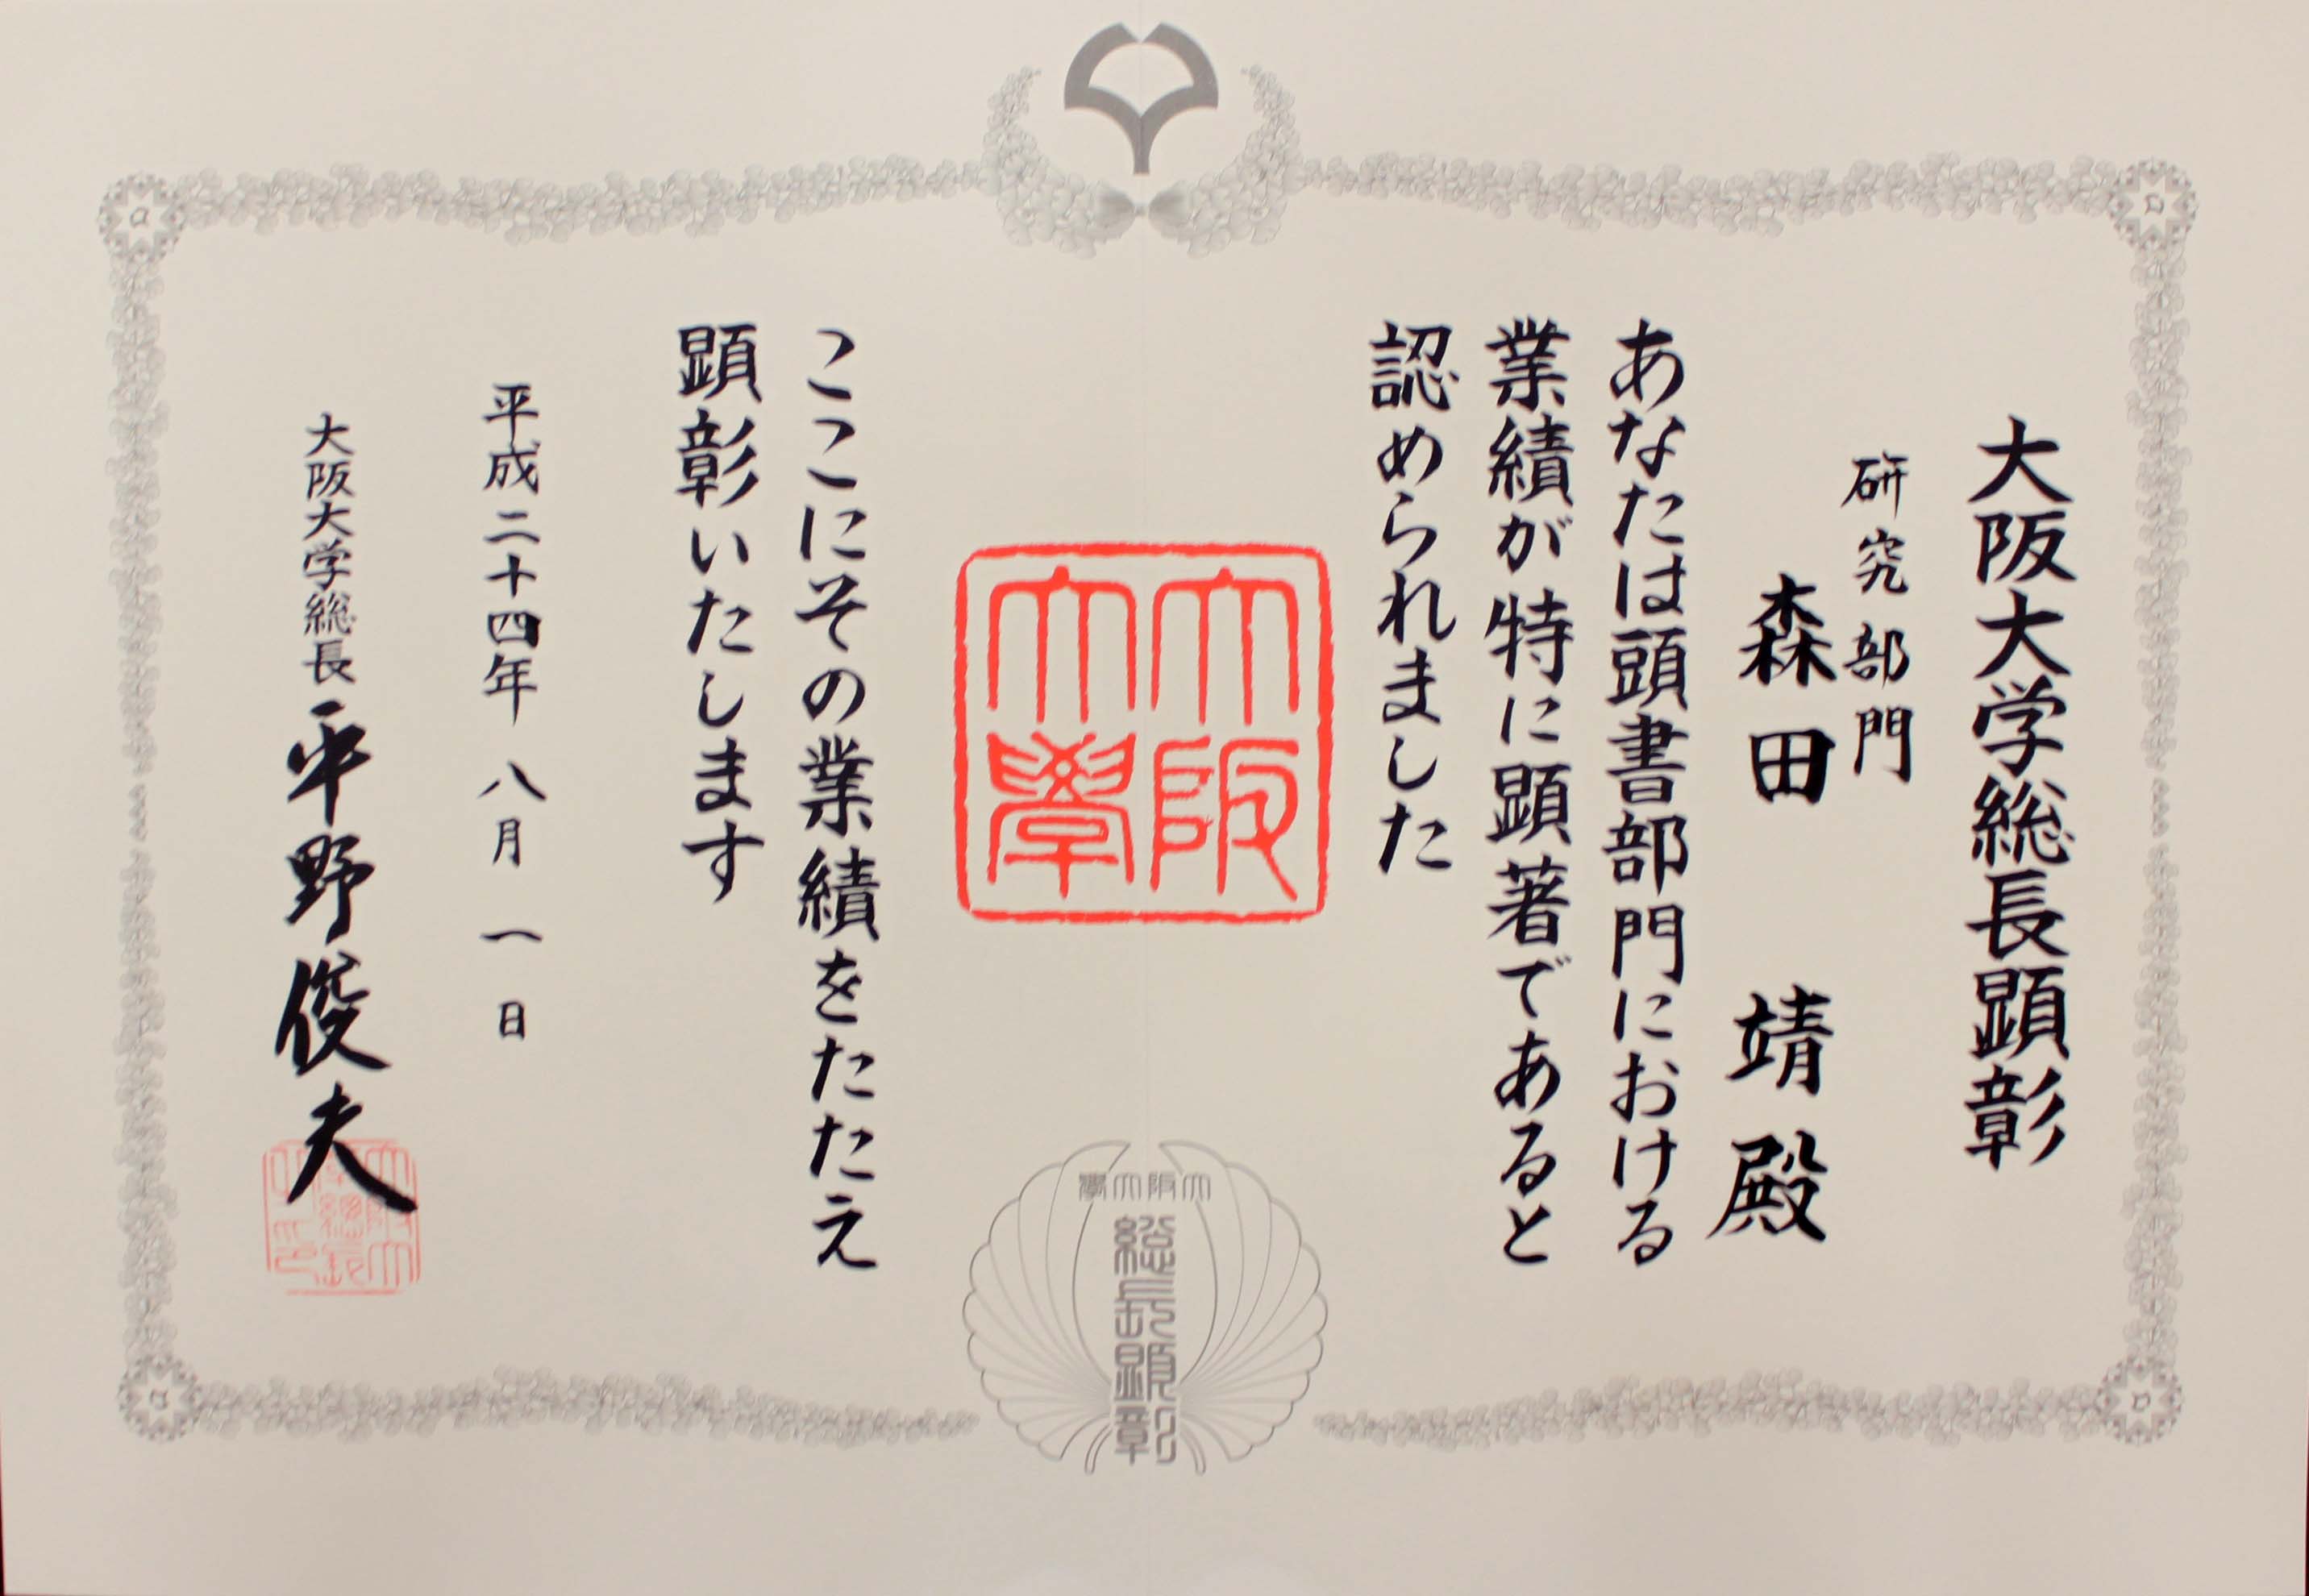 大阪大学総長顕彰
研究部門
森田 靖 殿
あなたは頭書部門における
業績が特に顕著であると
認められました
大阪大學
ここにその業績をたたえ
顕彰いたします
平成二十四年 八月 一日
大阪大学総長 平野俊夫
大阪大學
総長顕彰